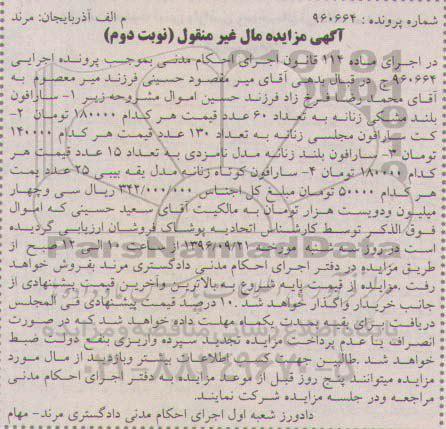 شماره پرونده : ۹۶۰۶۶۴ م الف آذربایجان: مرند
آگهی مزایده مال غیر منقول (نوبت دوم)
در اجرای ماده ۱۱۴ قانون اجرای احکام مدنی بموجب پرونده اجرایی
۹۶۰۶۶۴ج در قبال بدهی آقای میر مقصود حسینی فرزند میر معصوم به
آقای محمد رضا فرخ زاد فرزند حسین اموال مشروحه زیر ۱- سارافون
بلند مشکی زنانه به تعداد ۶۰ عدد قیمت هر کدام ۱۸۰۰۰۰ تومان ۲-
کت سارافون مجلسی زنانه به تعداد ۱۳۰ عدد قیمت هر کدام ۱۴۰۰۰۰
تومان ۳- سارافون بلند زنانه مدل نامزدی به تعداد ۱۵ عدد قیمت هر
کدام ۱۸۰۰۰۰ تومان ۴- سارافون کوتاه زنانه مدل یقه بیبی ۲۵ عدد قیمت
هر کدام ۵۰۰۰۰ تومان مبلغ کل اجناس ۳۴۲/۰۰۰/۰۰۰ ریال سی وچهار
میلیون ودویست هزار تومان به مالکیت آقای سعید حسینی که اموال
فوق الذکر توسط کارشناس اتحادیه پوشاک فروشان ارزیابی گردیده
است در روز مورخه ۱۳۹۶/۰۹/۲۱ از ساعت ۱۰ الی ۱۲ صبح از
طریق مزایده در دفتر اجرای احکام مدنی دادگستری مرند بفروش خواهد
رفت .مزایده از قیمت پایه شروع به بالاترین وآخرین قیمت پیشنهادی از
جانب خریدار واگذار خواهد شد. ۱۰درصد قیمت پیشنهادی فی المجلس
دریافت و برای بقیه بموجب یکماه مهلت داده خواهد شد که در صورت
انصراف یا عدم پرداخت مزایده تجدید سپرده واریزی بنفع دولت ضبط
خواهد شد .طالبین جهت کسب اطلاعات بیشتر وبازدید از مال مورد
مزایده میتوانند پنج روز قبل از موعد مزایده به دفتر اجرای احکام مدنی
مراجعه ودر جلسه مزایده شرکت نمایند.
دادورز شعبه اول اجرای احکام مدنی دادگستری مرند- مهام
ParsNamadData